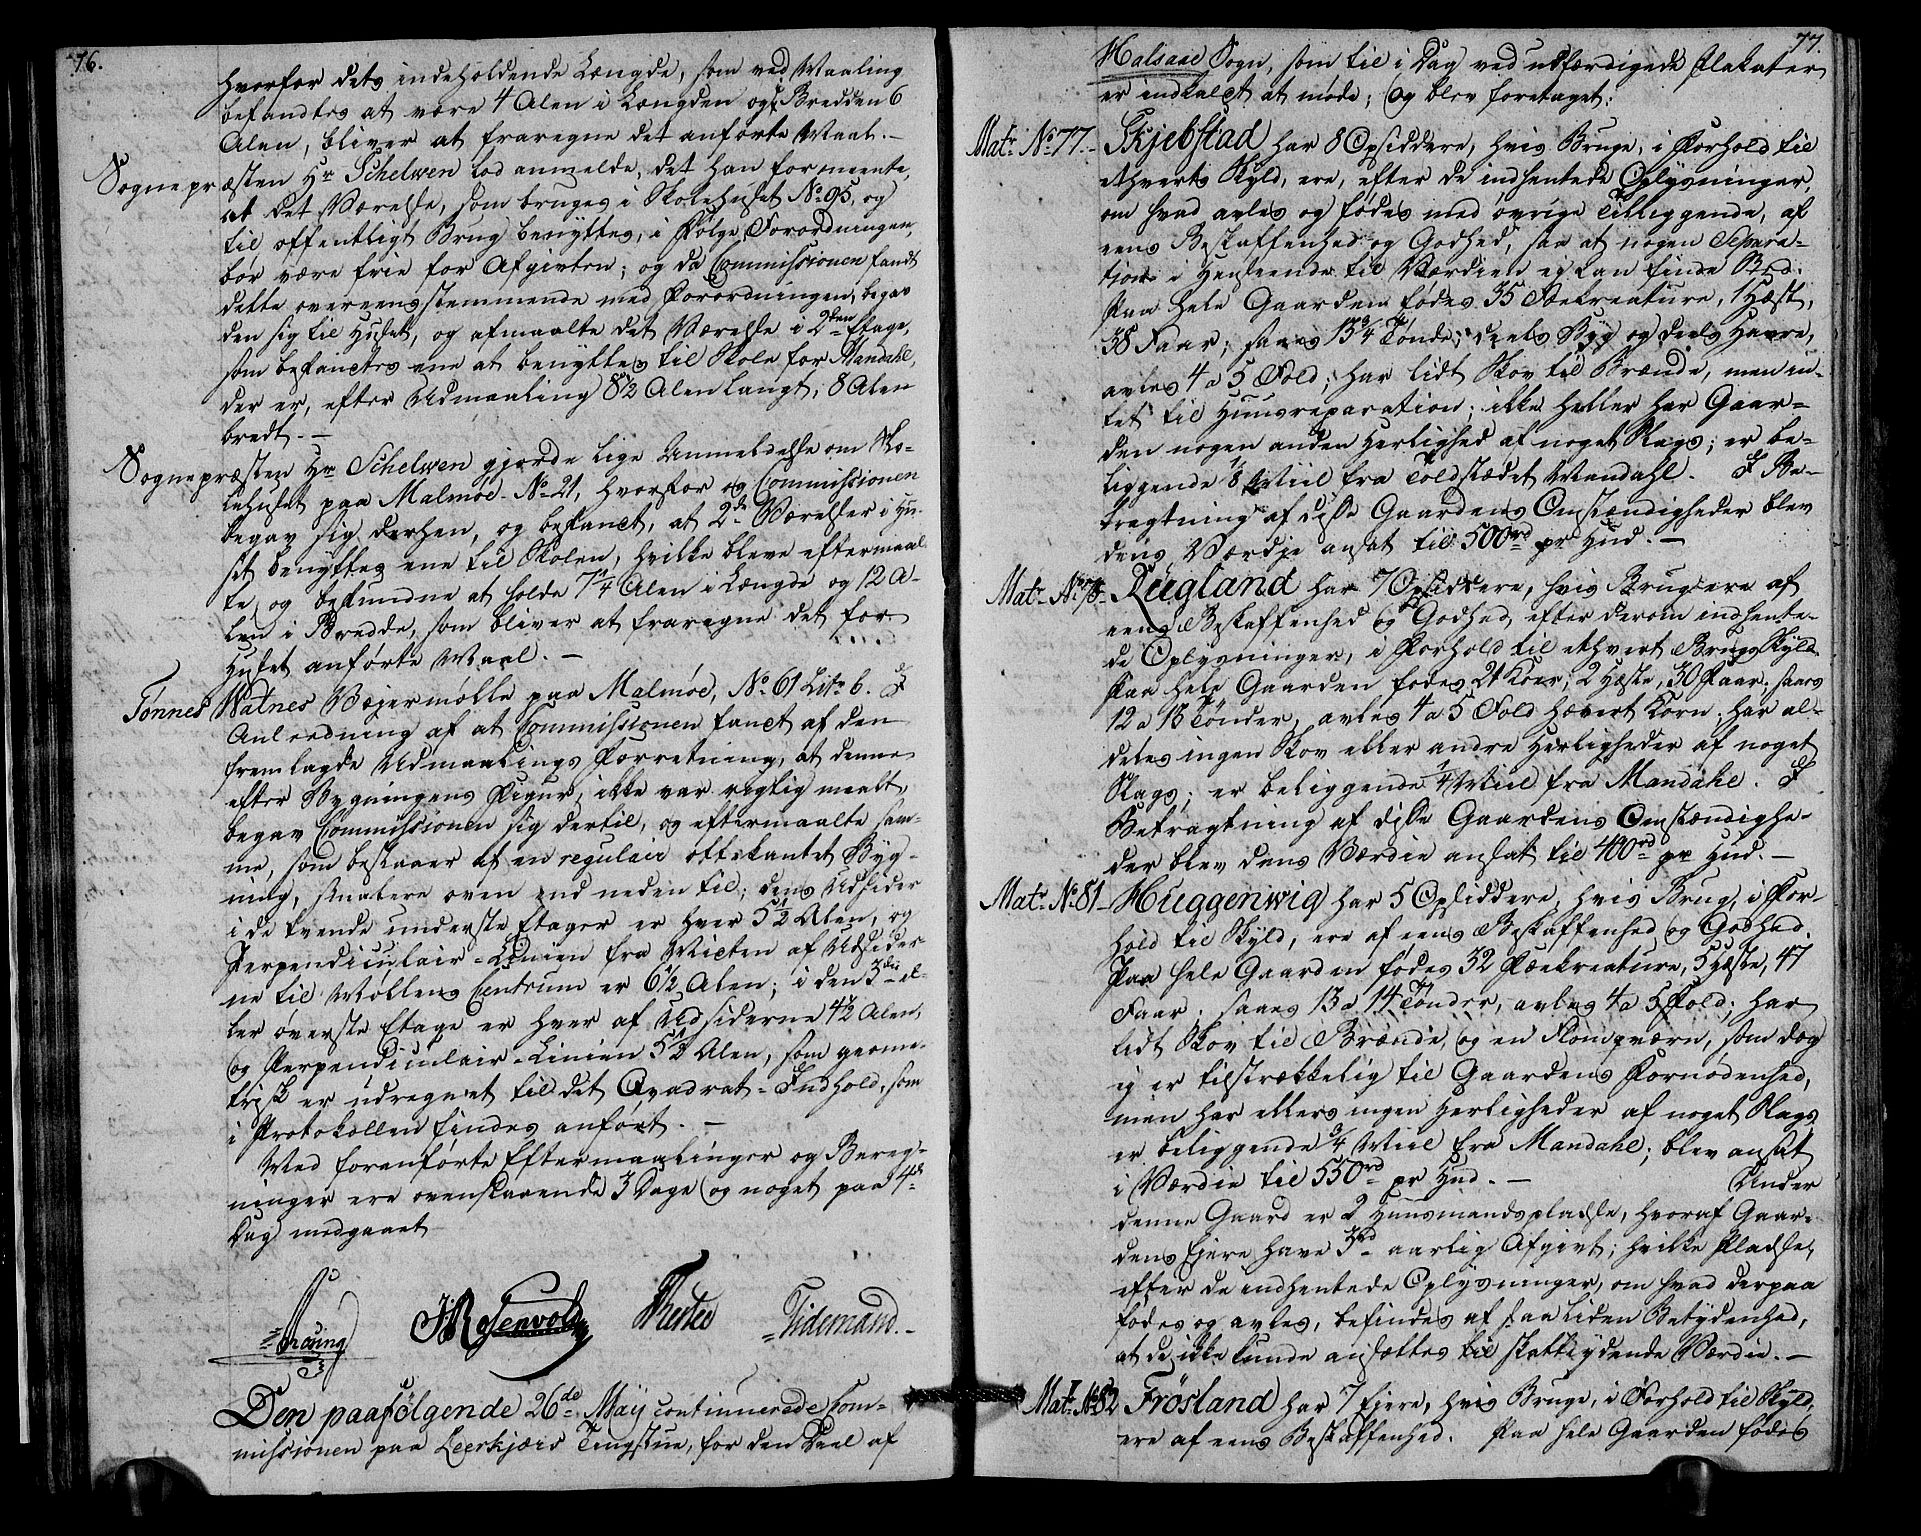 76.
hvorfor dets indeholdende Længde, som ved Maaling
befandtes at være 4 Alen i Længden og i Bredden 6
Alen, bliver at fraregne det anførte Maal. –
Sognepræsten Hr Schelwen lod anmelde, det han formeente,
at det Værelse, som bruges i Skolehuset No 95, og
til offentligt Brug benyttes, i Følge Forordningen,
bør være frie for Afgivten; og da Commissionen fandt
dette overeensstemmende med Forordningen, begav
den sig til Huset, og afmaalte det Værelse i 2den Etage,
som befandtes ene at benyttes til Skole for Mandahl,
der er, efter Udmaaling 8½ Alen langt, 8 Alen
bredt. –
Sognepræsten Hr Schelwen gjorde lige Anmeldelse om Sko-
lehuset paa Malmøe No 21, hvorfor og Commissionen
begav sig derhen, og befandt, at 2de Værelser i Hu-
set benyttes ene til Skolen, hvilke bleve eftermaal-
te og befundne at holde 7¼ Alen i Længde og 12 A-
len i Bredde, som bliver at fraregne det for
Huset anførte Maal. –
Tønnes Watnes Vejermølle paa Malmøe, No 61 Litr b. I
Anledning af at Commissionen fandt af den
fremlagde Udmaalings Forretning, at denne
efter Bygningens Figur, ikke var rigtig maalt,
begav Commissionen sig dertil, og eftermaalte sam-
me, som bestaaer af en regulair ottekantet Byg-
ning, smalere oven end neden til; dens Udsider
i de tvende underste Etager er hver 5½ Alen, og
Perpendiculair-Linien fra Midten af Udsider-
ne til Møllens Centrum er 6½ Alen; i den 3die el-
ler øverste Etage er hver af Udsiderne 4½ Alen,
og Perpendiculair-Linien 5½ Alen, som geome-
trisk er udregnet til det Qvadrat-Indhold, som
i Protokollen findes anført. –
Med foranførte Eftermaalinger og Bereg-
ninger ere ovenstaaende 3 Dage og noget paa 4de
Dag medgaaet
Arosing JRosenvold Tidemand. –
Den paafølgende 26de Maij continuerede Com-
missionen paa Leerkjærs Tingstue, for den Deel af
77.
Halsaae Sogn, som til i Dag ved udfærdigede Plakater
er indkaldt at møde; og blev foretaget:
Matr No 77. – Skjebstad har 8 Opsiddere, hvis Bruge, i Forhold til
ethverts Skyld, ere, efter de indhentede Oplysninger,
om hvad avles og fødes med øvrige Tilliggende, af
eens Beskaffenhed og Godhed, saa at nogen Separa-
tjon i Henseende til Værdien ej kan finde Sted.
Paa hele Gaarden fødes 35 Fækreature, 1 Hæst,
38 Faar, saaes 13¾ Tønde, deels Byg og deels Havre,
avles 4 a 5 Fold; har lidt Skov til Brænde, men in-
tet til Huusreparation; ikke heller har Gaar-
den nogen anden Herlighed af noget Slags; er be-
liggende ⅛ Miil fra Toldstædet Mandahl. I Be-
tragtning af disse Gaardens Omstændigheder blev
dens Værdje ansat til 500rd pr Hud. –
Matr No 78 – Røgland har 7 Opsiddere, hvis Brug ere af
eens Beskaffenhed og Godhed, efter derom indhente-
de Oplysninger, i Forhold til ethvert Brugs Skyld.
Paa hele Gaarden fødes 21 Kiør, 2 Hæste, 30 Faar, saaes
12 a 13 Tønder, avles 4 a 5 Fold hævert Korn. har al-
deles ingen Skov eller andre Herligheder af noget
Slags; er beliggende ¼ Miil fra Mandahl. I
Betragtning af disse Gaardens Omstændighe-
der blev dens Værdie ansat til 400rd pr Hud. –
Matr No 81 – Huggenwig har 5 Opsiddere, hvis Brug, i For-
hold til Skyld, ere af eens Beskaffenhed og Godhed.
Paa hele Gaarden fødes 32 Fækreature, 5 Hæste, 47
Faar; saaes 13 a 14 Tønder, avles 4 a 5 Fold; har
lidt Skov til Brænde, og en Flomqværn, som dog
ej er tilstrækkelig til Gaardens Fornødenhed,
men har ellers ingen Herligheder af noget Slags
er beliggende ¾ Miil fra Mandahl; blev ansat
i Værdie til 550rd pr Hud. – Under
denne Gaard er 2 Huusmandspladse, hvoraf Gaar-
dens Ejere have 3rd aarlig Afgivt; hvilke Pladse,
efter de indhentede Oplysninger, om hvad derpaa
fødes og avles, befindes af saa liden Betydenhed,
at de ikke kunde ansættes til skattydende Værdie. –
Matr No 82 Frösland har 7 Ejere, hvis Bruge, i Forhold til Skyld,
ere af eens Beskaffenhed. Paa hele Gaarden fødes